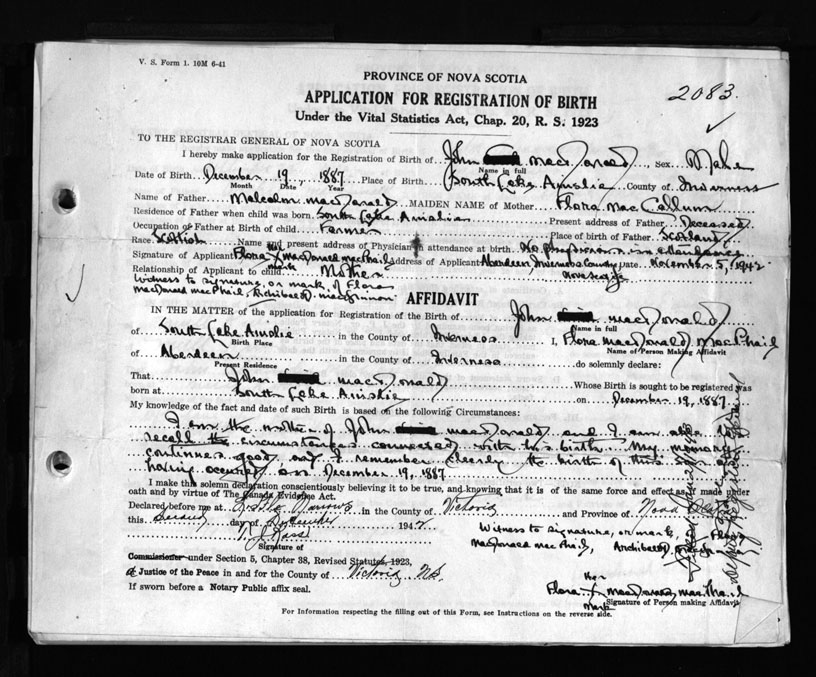 V. S. Form 1. 10M 6-41
PROVINCE OF NOVA SCOTIA
APPLICATION FOR REGISTRATION OF BIRTH
2083.
Under the Vital Statistics Act, Chap. 20, R. S. 1923
TO THE REGISTRAR GENERAL OF NOVA SCOTIA
I hereby make application for the Registration of Birth of John MacDonald, Sex Male
Name in full
Date of Birth December 19, 1887 Place of Birth South Lake Ainslie County of Inverness
Month Date Year
Name of Father Malcolm MacDonald MAIDEN NAME of Mother Flora MacCallum
Residence of Father when child was born South Lake Ainslie Present address of Father Deceased
Occupation of Father at Birth of child Farmer Place of birth of Father Scotland
Race Scottish Name and present address of Physician in attendance at birth No physician in attendance
Signature of Applicant Flora her X mark MacDonald MacPhail Address of Applicant Aberdeen, Inverness County, Date November 5, 1942
Nova Scotia
Relationship of Applicant to child Mother
Witness to signature, or mark, of Flora
MacDonald MacPhail, Archibald MacKinnon
AFFIDAVIT
IN THE MATTER of the application for Registration of the Birth of John MacDonald
Name in full
of South Lake Ainslie in the County of Inverness I, Flora MacDonald MacPhail
Birth Place Name of Person Making Affidavit
of Aberdeen in the County of Inverness do solemnly declare:
Present Residence
That John MacDonald Whose Birth is sought to be registered was
born at South Lake Ainslie on December 19, 1887
My knowledge of the fact and date of such Birth is based on the following Circumstances:
I am the mother of John MacDonald and I am able to
recall the circumstances connected with his birth. My memory
continues good and I remember clearly the birth of this
having occurred on December 19, 1887
I make this solemn declaration conscientiously believing it to be true, and knowing that it is of the same force and effect as if made under
oath and by virtue of The Canada Evidence Act.
Declared before me at Little Narrows in the County of Victoria and Province of Nova Scotia
this second day of December 1942
Witness to signature, or mark, Flora
MacDonald MacPhail, Archibald
Ross
Signature of
Commissioner under Section 5, Chapter 38, Revised Statutes, 1923,
a Justice of the Peace in and for the County of Victoria NS.
If sworn before a Notary Public affix seal.
Flora her X mark MacDonald MacPhail
Signature of Person making Affidavit
For Information respecting the filling out of this Form, see Instructions on the reverse side.